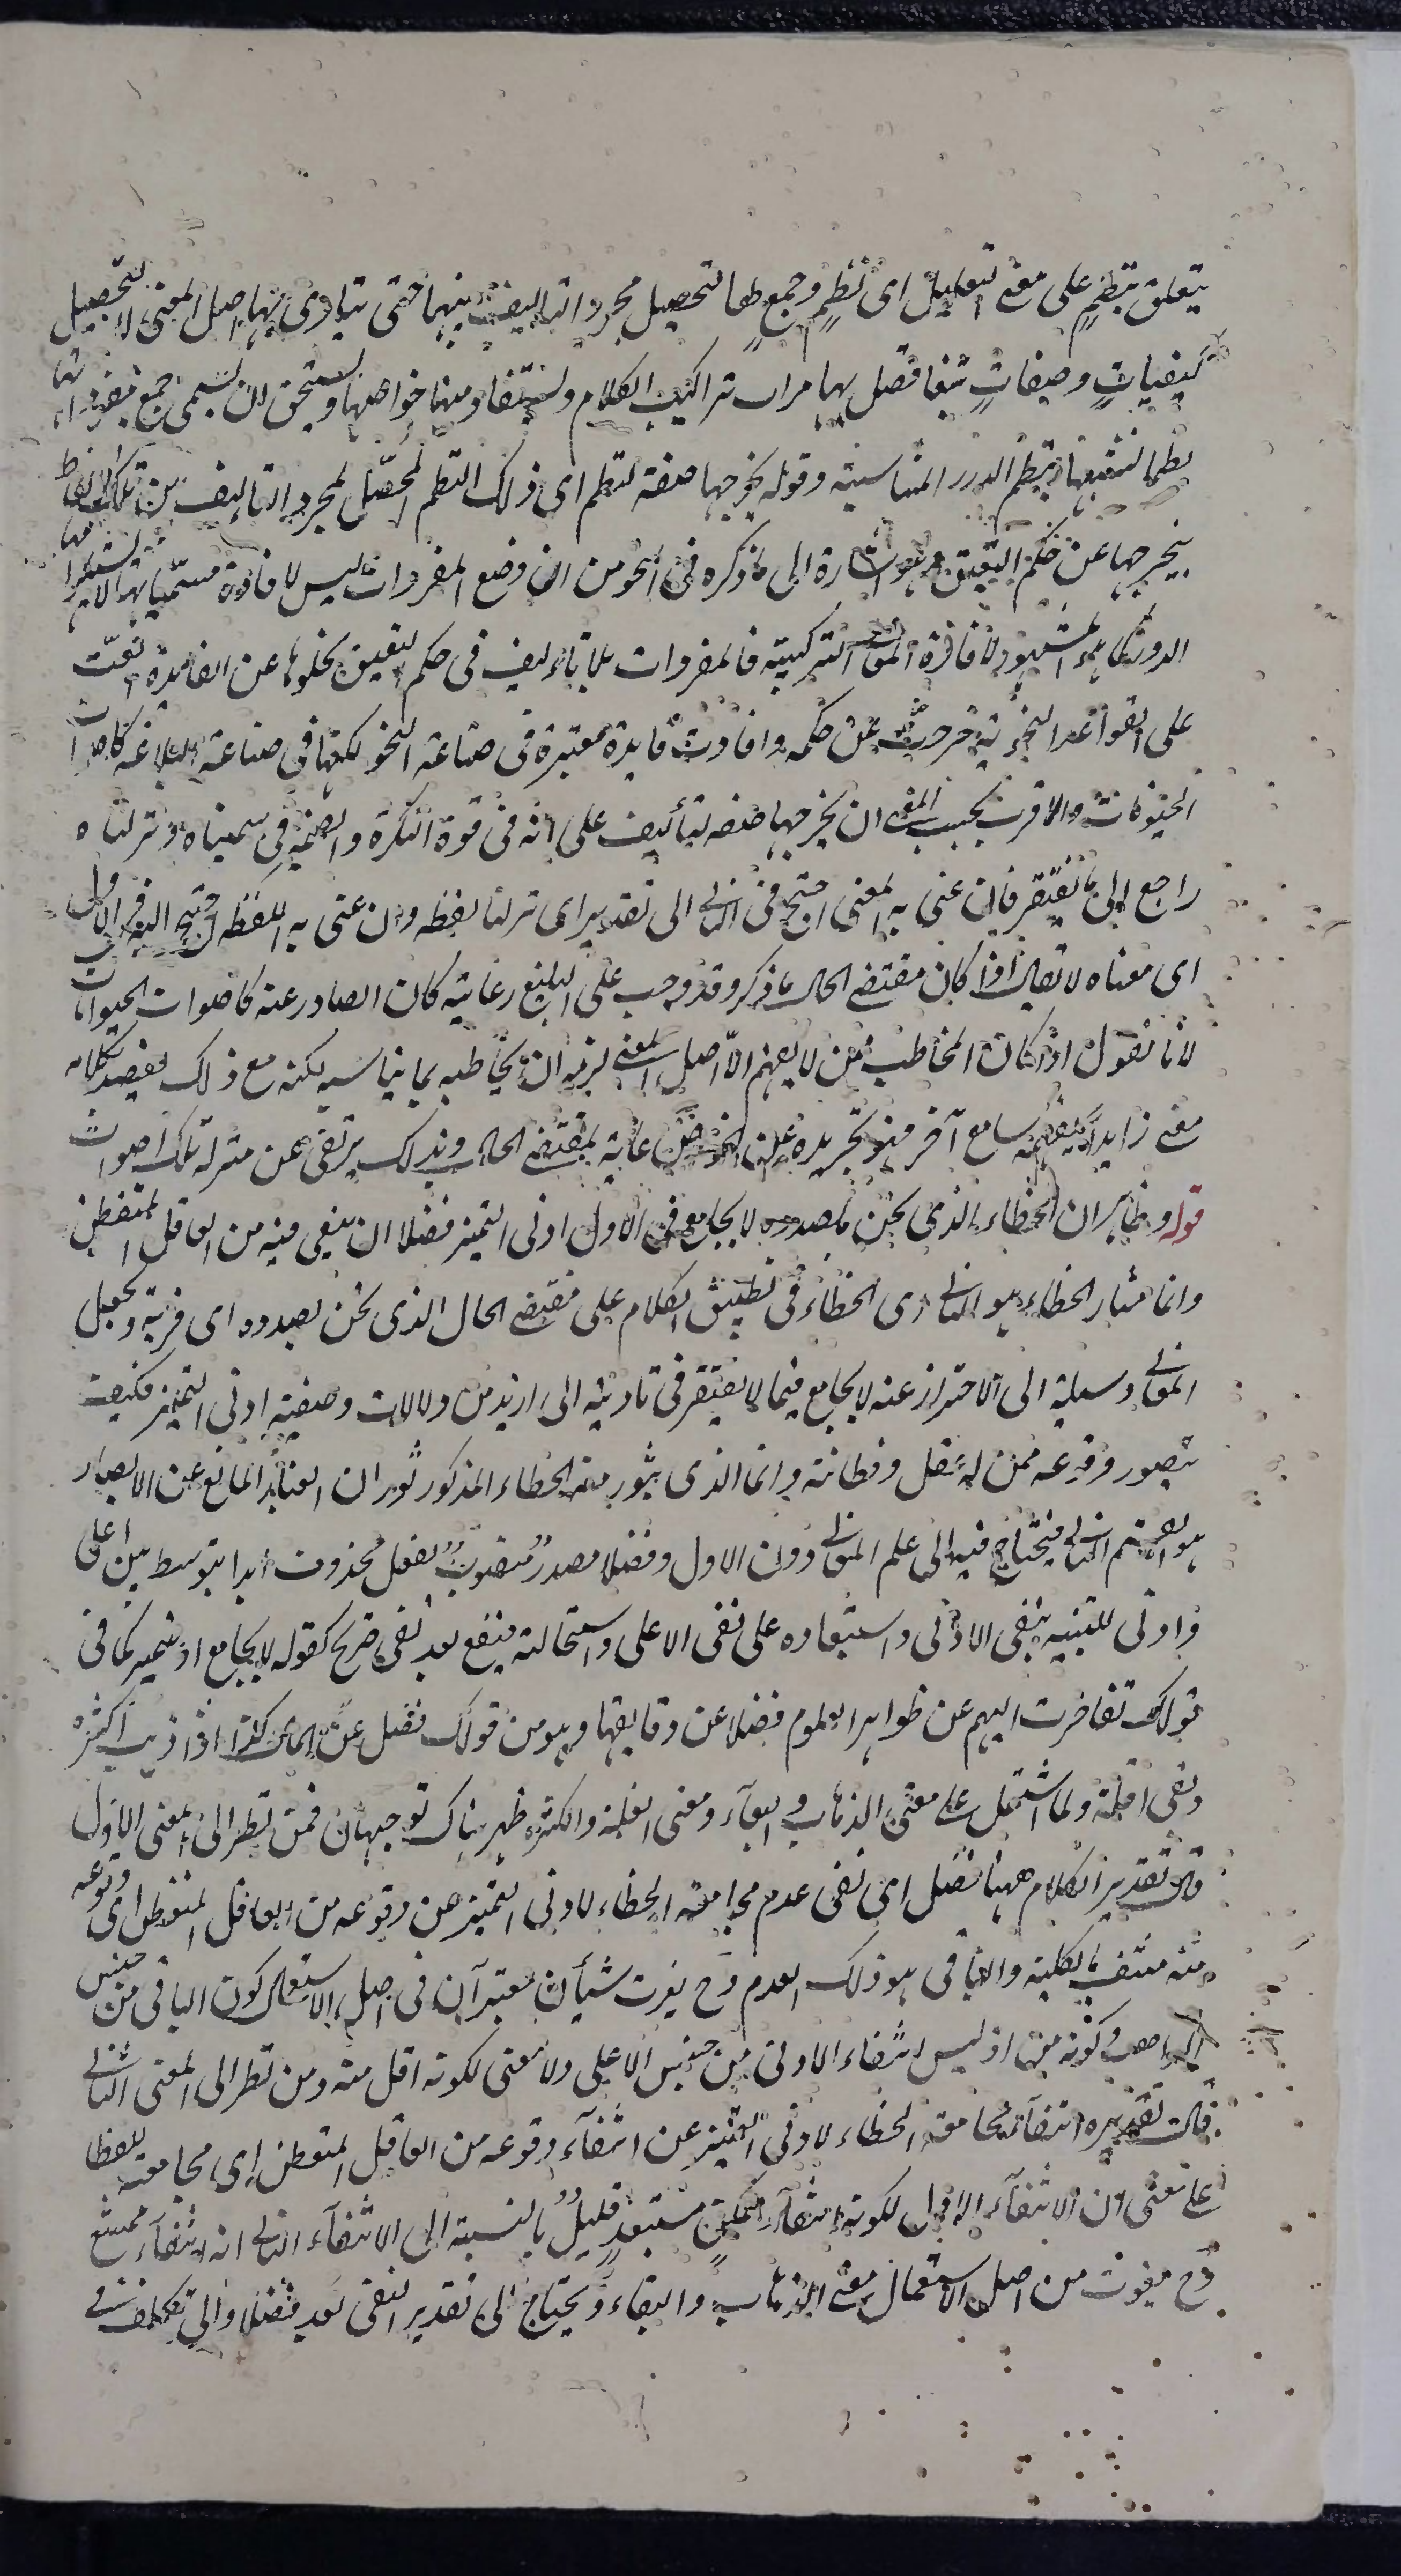 يتعلق بنظم على معنى التعليل اى نظم وجمع لها لتحصيل مجرد التاليف بينها حتى يتادى بها اصل المعنى لا لتحصيل
كيفيات وصفات يتفاضل بها مراتب تراكيب الكلام ويستفاد منها خواصها ويستحق لان يسمى جمع مفرداتها
نظما تشبيها بنظم الدرر المتناسبة وقوله يخرجها صفة لنظم اى ذلك النظم المحصل لمجرد التاليف بين تلك الالفاظ
يخرجها عن حكم النعيق وهو اشارة الى ما ذكره فى النحو من ان وضع المفردات ليس لافادة مسمياتها لاستلزامها
الدور كما هو المشهور بل لافادة المعانى التركيبية فالمفردات بلا تاليف فى حكم النعيق لخلوها عن الفائدة الفت
على القواعد النحوية خرجت عن حكمه وافادت فايدة معتبرة فى صناعة النحو لكنها فى صناعة البلاغة كاصوات
الحيوانات والاقرب بحسب المعنى ان يخرجها صفة لتأليف على انه فى قوة النكرة والضمير فى سميناه ونزلناه
راجع الى ما يفتقر فان عنى به المعنى احتيج فى الثانى الى تقدير اى نزلنا لفظه وان عنى به اللفظ احتيج اليه فى الاول
اى معناه لا يقال اذا كان مقتضى الحال ما ذكر وقد وجب على البليغ رعايته كان الصادر عنه كاصوات الحيوانات
لانا نقول اذا كان المخاطب ممن لا يفهم الا اصل المعنى لزمه ان يخاطبه بما يناسبه لكنه مع ذلك يقصد بكلامه
معنى زايدا يفهمه سامع آخر هو تجريده عن الخواص رعاية لمقتضى الحال وبذلك يرتقى عن منزلة تلك اصوات
قوله وظاهر ان الخطاء الذى نحن بصدده لا يجامع فى الاول ادنى التميز فضلا ان يقع فيه من العاقل المتفطن
وانما مثار الخطاء هو الثانى اى الخطاء فى تطبيق الكلام على مقتضى الحال الذى نحن بصدده اى قربه وجعل
المعانى وسيلة الى الاحتراز عنه لا يجامع فيما لا يفتقر فى تاديته الى ازيد من دلالات وضعية ادنى التميز فكيف
يتصور وقوعه ممن له عقل وفطانة وانما الذى يثور منه الخطاء المذكور ثوران الغبار المانع عن الابصار
هو القسم الثانى فيحتاج فيه الى علم المعانى دون الاول وفضلا مصدر منصوب بفعل محذوف ابدا يتوسط بين اعلى
وادنى للتنبيه بنفى الادنى واستبعاده على نفى الاعلى واستحالته فيقع بعد نفى صريح كقوله لا يجامع او ضمير كما فى
قولك تقاصرت الهمم عن ظواهر العلوم فضلا عن دقايقها وهو من قولك فضل عن المال كذا اذا ذهب اكثره
وبقى اقله ولما اشتمل على معنى الذهاب والبقاء ومعنى القلة والكثرة ظهر هناك توجيهان فمن نظر الى المعنى الاول
قال تقدير الكلام ههنا فضل اى بقى عدم مجامعة الخطاء لادنى التميز عن وقوعه من العاقل المتفطن اى وقوعه
منه منتف بالكلية والباقى هو ذلك العدم وح يفوت شيأن معتبران فى اصل الاستعمال كون الباقى من جنس
الذاهب وكونه منها اذ ليس انتفاء الادنى من جنس الاعلى ولا معنى لكونه اقل منه ومن نظر الى المعنى الثانى
قال تقديره انتفاء مجامعة الخطاء لادنى التميز عن انتفاء وقوعه من العاقل المتفطن اى مجامعته للفظا
على معنى ان الانتفاء الاول لكونه انتفاء ممكن مستبعد قليل بالنسبة الى الانتفاء الثانى انه انتفاء ممتنع
وح يفوت من اصل الاستعمال معنى الذهاب والبقاء ويحتاج الى تقدير النفى بعد فضلا والى تكلف فى